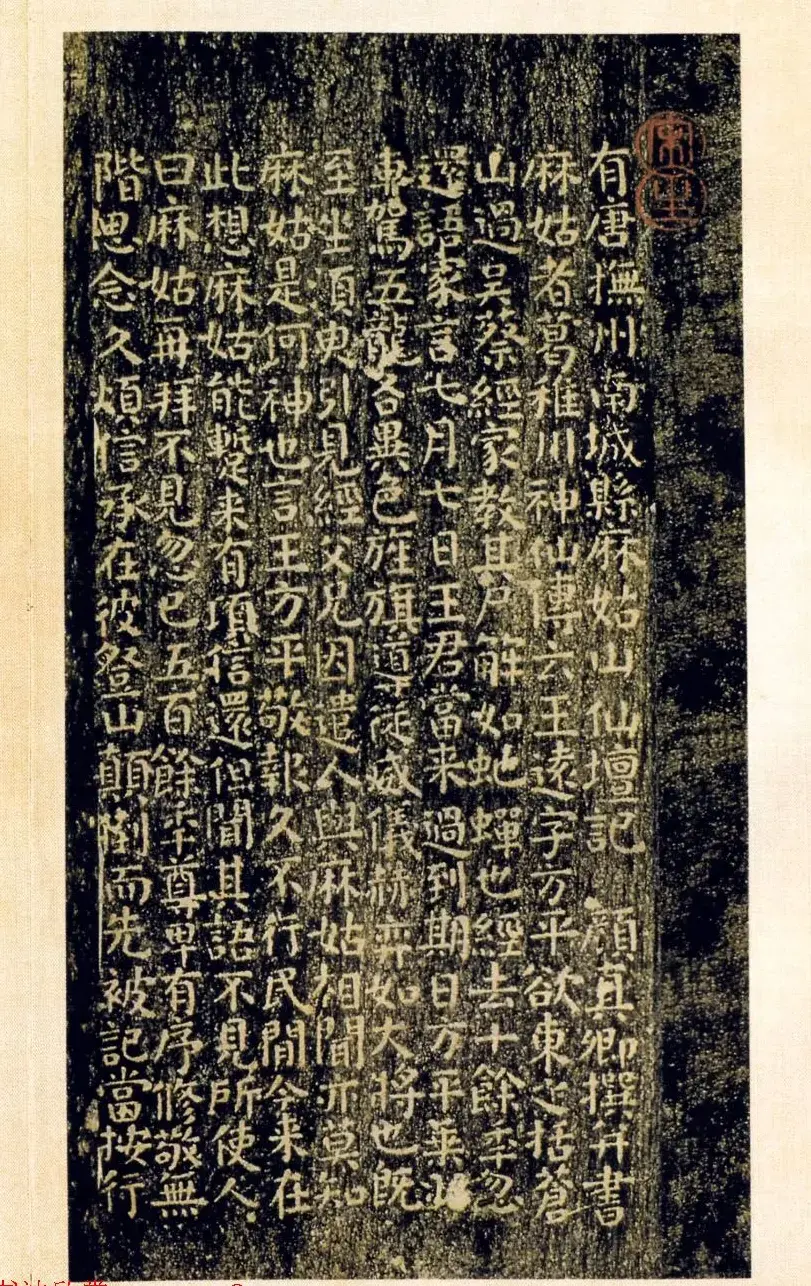 有唐撫州南城縣麻姑山仙壇記 顔真卿撰并書
麻姑者葛稚川神仙傳云王遠字方平欲東之括蒼
山過吴蔡經家教其尸解如虵蟬也經去十餘年忽
還語家言七月七日王君當来過到期日方平乗羽
車駕五龍各異色旌旗導従威儀赫弈如大將也既
至坐須臾引見經父兄因遣人與麻姑相聞亦莫知
麻姑是何神也言王方平敬報久不行民間今来在
此想麻姑能蹔来有頃信還但聞其語不見所使人
曰麻姑再拜不見忽已五百餘年尊卑有序修敬無
階思念久煩信承在彼登山顛倒而先被記當按行